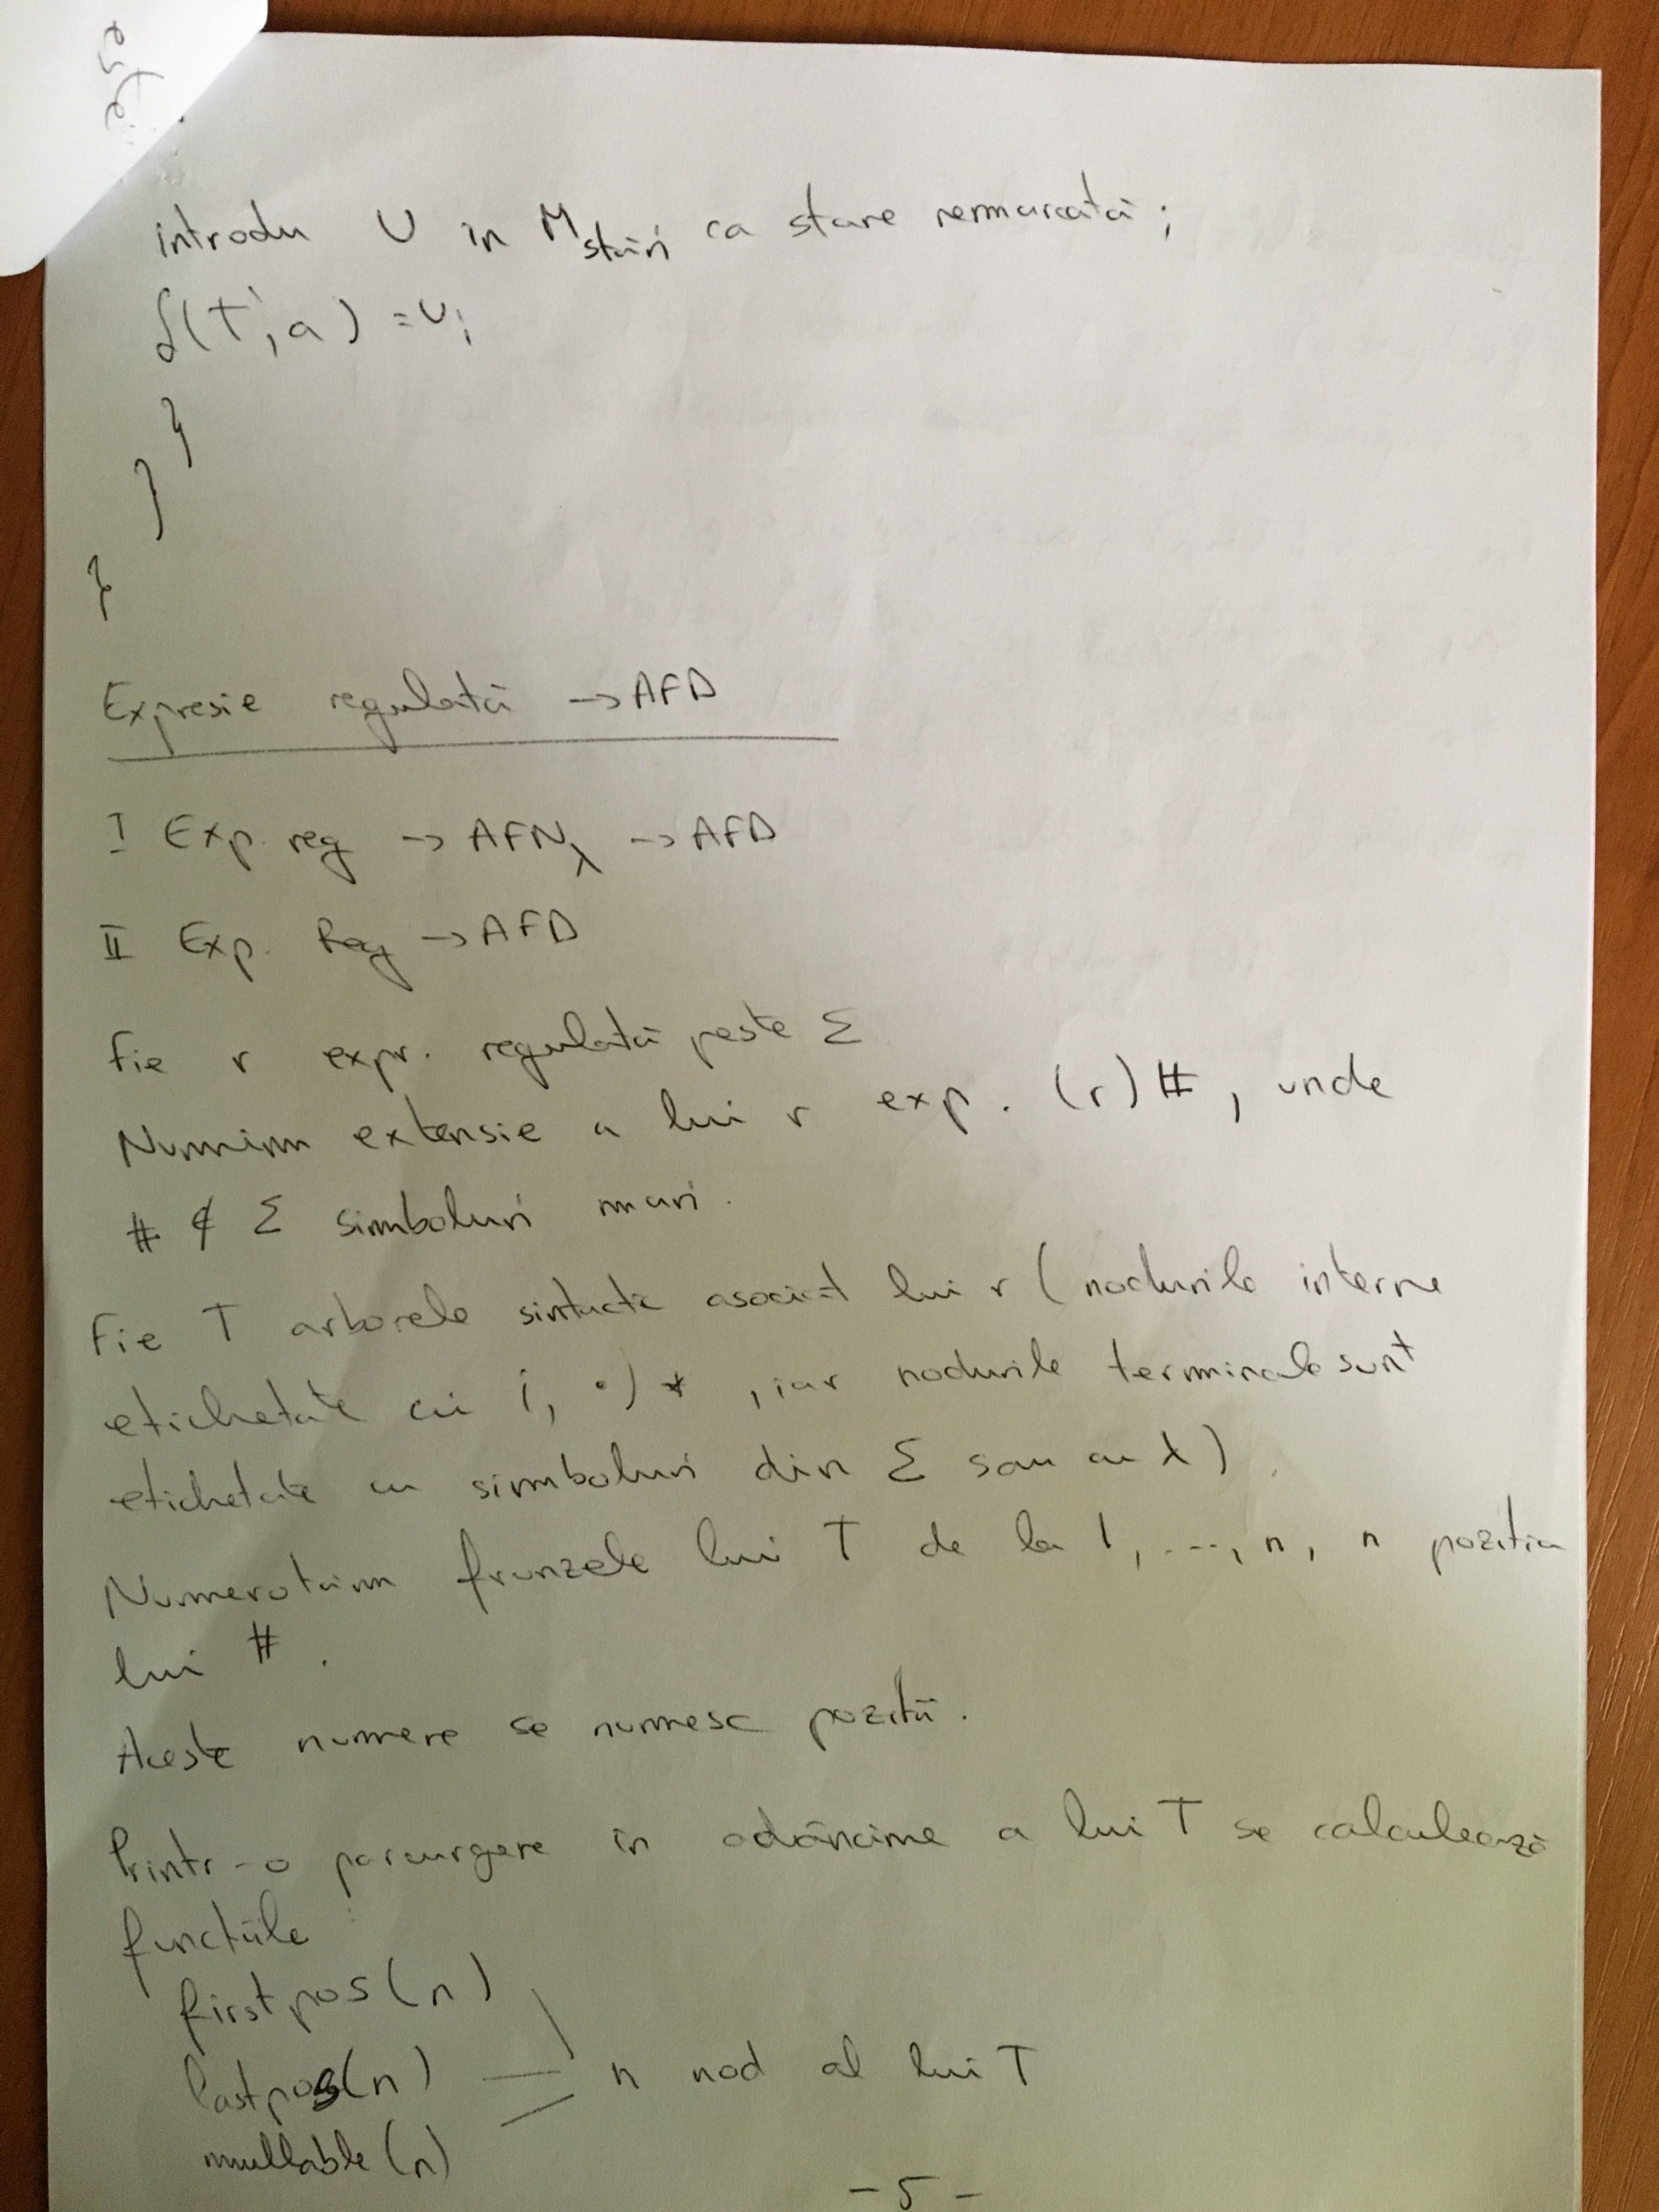 este
introdu U in Mstări ca stare nemarcată;
δ(T', a) = U;
}
}
}
Expresie regulată -> AFD
I Exp. reg -> AFNλ -> AFD
II Exp. Reg -> AFD
Fie r expr. regulată peste Σ
Numim extensie a lui r exp. (r)#, unde
# ∉ Σ simboluri
Fie T arborele sintactic asociat lui r (nodurile interne
etichetate cu |, ·, * , iar nodurile terminale sunt
etichetate cu simboluri din Σ sau cu λ).
Numerotăm frunzele lui T de la 1, ..., n, n poziția
lui #.
Aceste numere se numesc poziții.
Printr-o parcurgere în adâncime a lui T se calculează
funcțiile
firstpos(n)
lastpos(n) n nod al lui T
nullable(n)
- 5 -